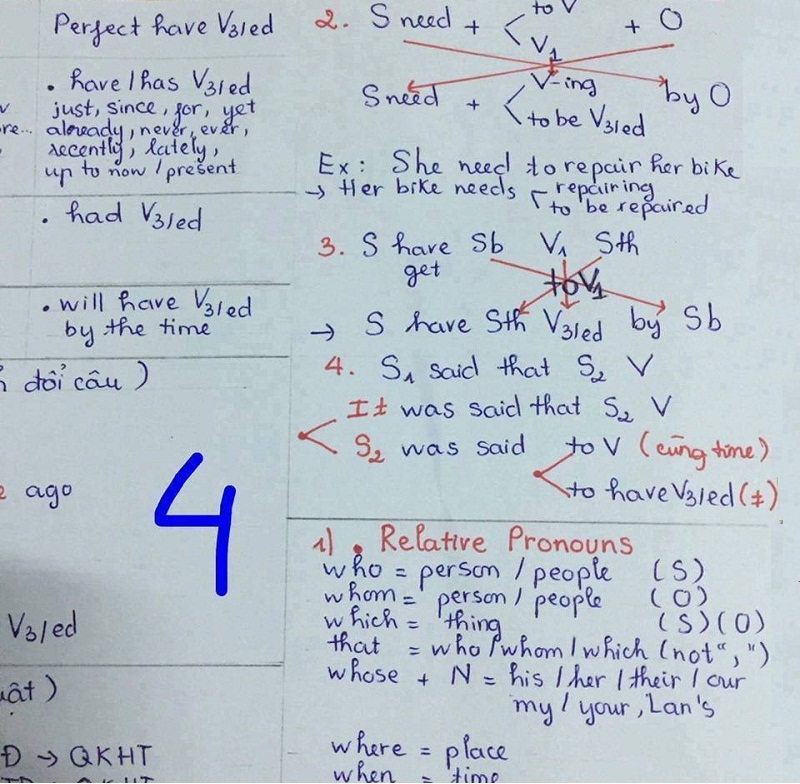 Perfect have V3/ed
. have/has V3/ed
just, since, for, yet
already, never, ever,
recently, lately,
up to now/present
. had V3/ed
. will have V3/ed
by the time
đổi câu)
ago
4
V3/ed
uật)
Đ → QKHT
2. S need + < to V + O
V1
S need + < V-ing by O
to be V3/ed
Ex: She need to repair her bike
→ Her bike needs repairing
to be repaired
3. S have Sb V1 Sth
get to V1
→ S have Sth V3/ed by Sb
4. S1 said that S2 V
It was said that S2 V
S2 was said to V (cùng time)
to have V3/ed (≠)
1) . Relative Pronouns
who = person / people (S)
whom = person / people (O)
which = thing (S) (O)
that = who/whom/which (not ",")
whose + N = his / her / their / our
my / your, Lan's
where = place
when = time